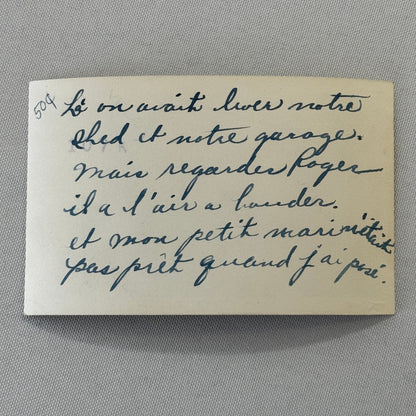 50¢
Là on avait lver notre
shed et notre garage.
Mais regarder Roger
il a l'air a bouder.
et mon petit mari n'était
pas prêt quand j'ai posé.